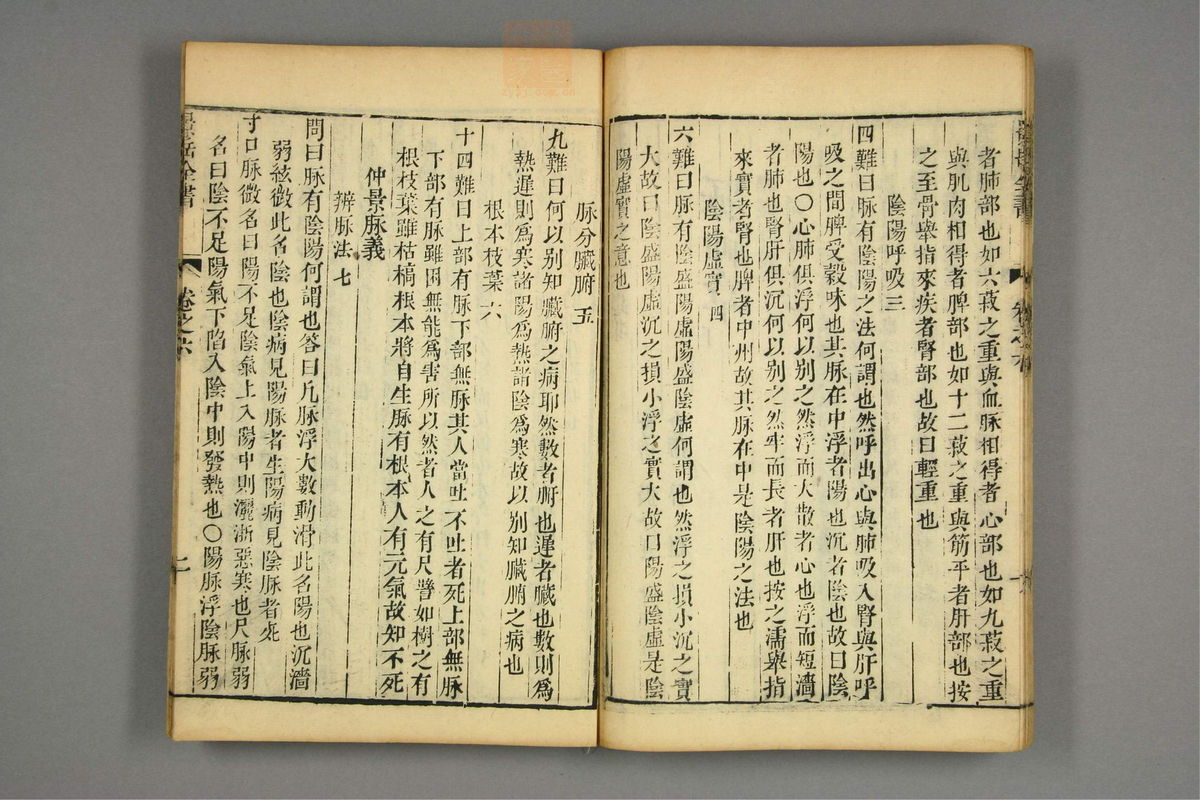 者肺部也如六菽之重與血脉相得者心部也如九菽之重
與肌肉相得者脾部也如十二菽之重與筋平者肝部也按
之至骨舉指來疾者腎部也故曰輕重也
陰陽呼吸三
四難曰脉有陰陽之法何謂也然呼出心與肺吸入腎與肝呼
吸之間脾受穀味也其脉在中浮者陽也沉者陰也故曰陰
陽也〇心肺俱浮何以別之然浮而大散者心也浮而短濇
者肺也腎肝俱沉何以別之然牢而長者肝也按之濡舉指
來實者腎也脾者中州故其脉在中是陰陽之法也
陰陽虛實四
六難曰脉有陰盛陽虛陽盛陰虛何謂也然浮之損小沉之實
大故曰陰盛陽虛沉之損小浮之實大故曰陽盛陰虛是陰
陽虛實之意也
脉分臟腑五
九難曰何以別知臟腑之病耶然數者腑也遲者臟也數則爲
熱遲則爲寒諸陽爲熱諸陰爲寒故以別知臟腑之病也
根本枝葉六
十四難曰上部有脉下部無脉其人當吐不吐者死上部無脉
下部有脉雖困無能爲害所以然者人之有尺譬如樹之有
根枝葉雖枯槁根本將自生脉有根本人有元氣故知不死
仲景脉義
辨脉法七
問曰脉有陰陽何謂也答曰凡脉浮大數動滑此名陽也沉濇
弱弦微此名陰也陰病見陽脉者生陽病見陰脉者死
寸口脉微名曰陽不足陰氣上入陽中則灑淅惡寒也尺脉弱
名曰陰不足陽氣下陷入陰中則發熱也〇陽脉浮陰脉弱
全書
卷之六
二